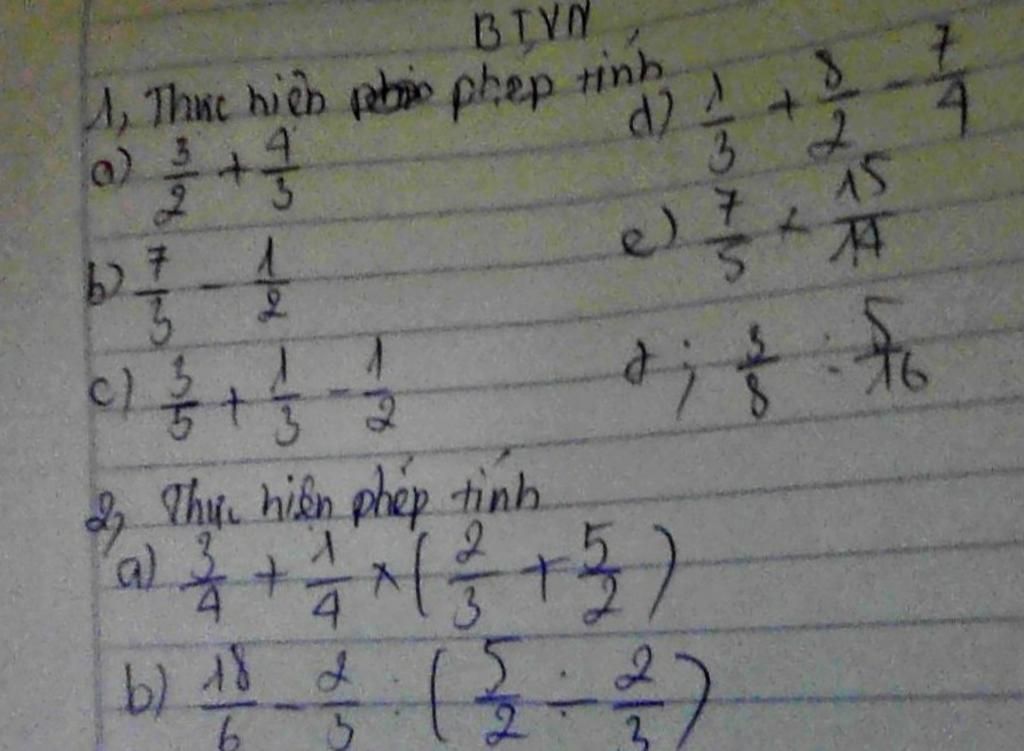 BTVN
1, Thực hiện phép tính
a) 3/2 + 4/3
b) 7/3 - 1/2
c) 3/5 + 1/3 - 1/2
d) 1/3 + 8/2 - 7/4
e) 7/5 × 15/14
; 3/8 : 5/16
2, Thực hiện phép tính
a) 3/4 + 1/4 × ( 2/3 + 5/2 )
b) 18/6 - 2/3 : ( 5/2 ÷ 2/3 )